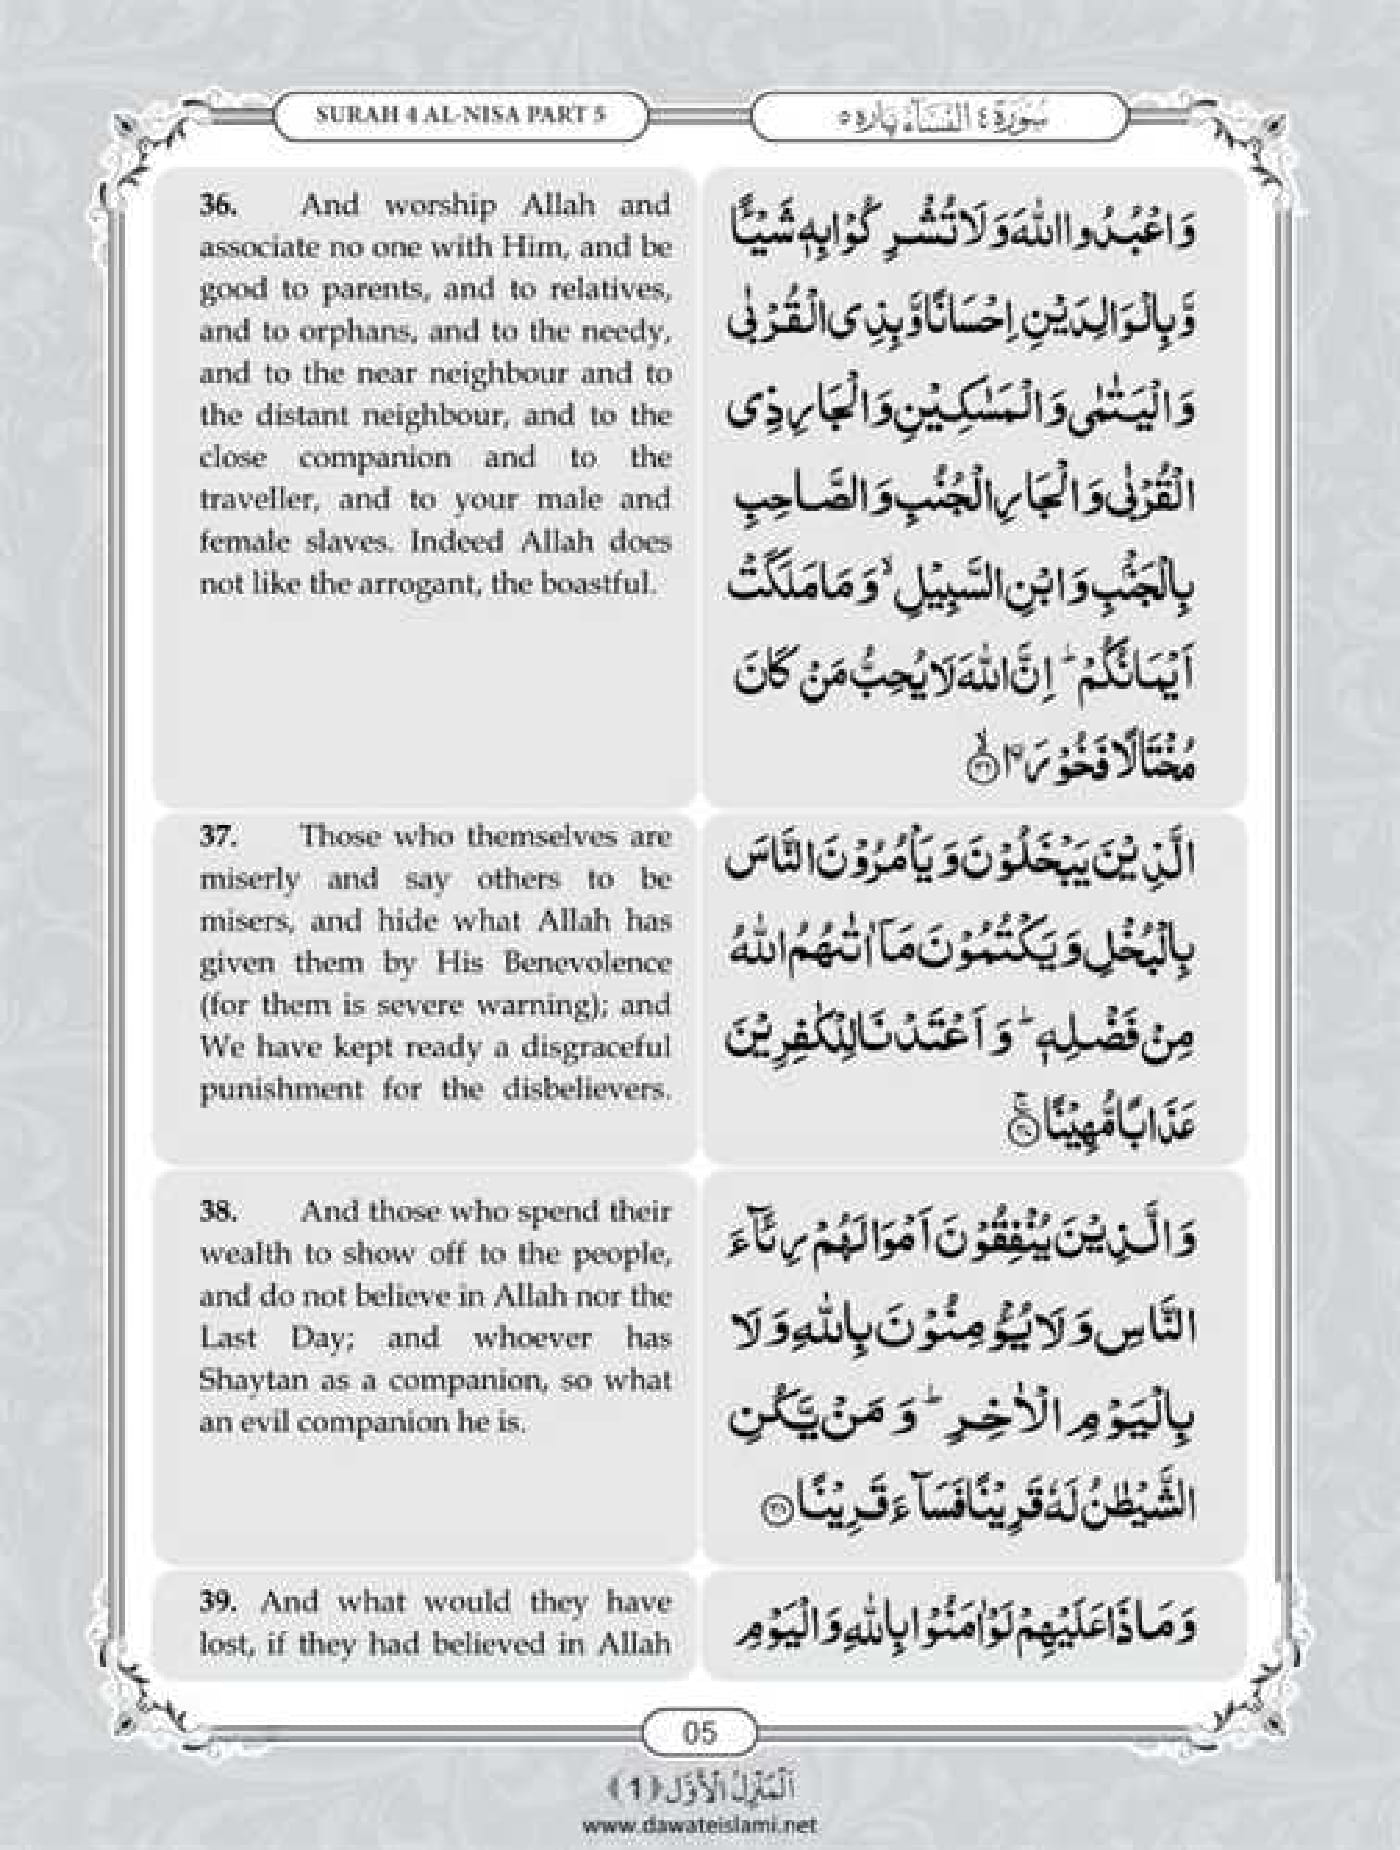 SURAH 4 AL-NISA PART 5
سُوْرَة ٤ النِّسَآءِ پاره ٥
36. And worship Allah and
associate no one with Him, and be
good to parents, and to relatives,
and to orphans, and to the needy,
and to the near neighbour and to
the distant neighbour, and to the
close companion and to the
traveller, and to your male and
female slaves. Indeed Allah does
not like the arrogant, the boastful.
وَاعْبُدُوا اللّٰهَ وَلَا تُشْرِكُوْا بِهٖ شَيْـًٔا
وَّبِالْوَالِدَيْنِ اِحْسَانًا وَّبِذِی الْقُرْبٰی
وَالْيَتٰمٰی وَالْمَسٰكِيْنِ وَالْجَارِ ذِی
الْقُرْبٰی وَالْجَارِ الْجُنُبِ وَالصَّاحِبِ
بِالْجَنْۢبِ وَابْنِ السَّبِيْلِ ۙ وَمَا مَلَكَتْ
اَيْمَانُكُمْ ؕ اِنَّ اللّٰهَ لَا يُحِبُّ مَنْ كَانَ
مُخْتَالًا فَخُوْرَا ۙ﴿۳۶﴾
37. Those who themselves are
miserly and say others to be
misers, and hide what Allah has
given them by His Benevolence
(for them is severe warning); and
We have kept ready a disgraceful
punishment for the disbelievers.
الَّذِيْنَ يَبْخَلُوْنَ وَيَاْمُرُوْنَ النَّاسَ
بِالْبُخْلِ وَيَكْتُمُوْنَ مَاۤ اٰتٰىهُمُ اللّٰهُ
مِنْ فَضْلِهٖ ؕ وَاَعْتَدْنَا لِلْكٰفِرِيْنَ
عَذَابًا مُّهِيْنًا ۚ﴿۳۷﴾
38. And those who spend their
wealth to show off to the people,
and do not believe in Allah nor the
Last Day; and whoever has
Shaytan as a companion, so what
an evil companion he is.
وَالَّذِيْنَ يُنْفِقُوْنَ اَمْوَالَهُمْ رِئَآءَ
النَّاسِ وَلَا يُؤْمِنُوْنَ بِاللّٰهِ وَلَا
بِالْيَوْمِ الْاٰخِرِ ؕ وَمَنْ يَّكُنِ
الشَّيْطٰنُ لَهٗ قَرِيْنًا فَسَآءَ قَرِيْنًا ﴿۳۸﴾
39. And what would they have
lost, if they had believed in Allah
وَمَاذَا عَلَيْهِمْ لَوْ اٰمَنُوْا بِاللّٰهِ وَالْيَوْمِ
05
اَلْمَنْزِلُ الْاَوَّل ﴿1﴾
www.dawateislami.net